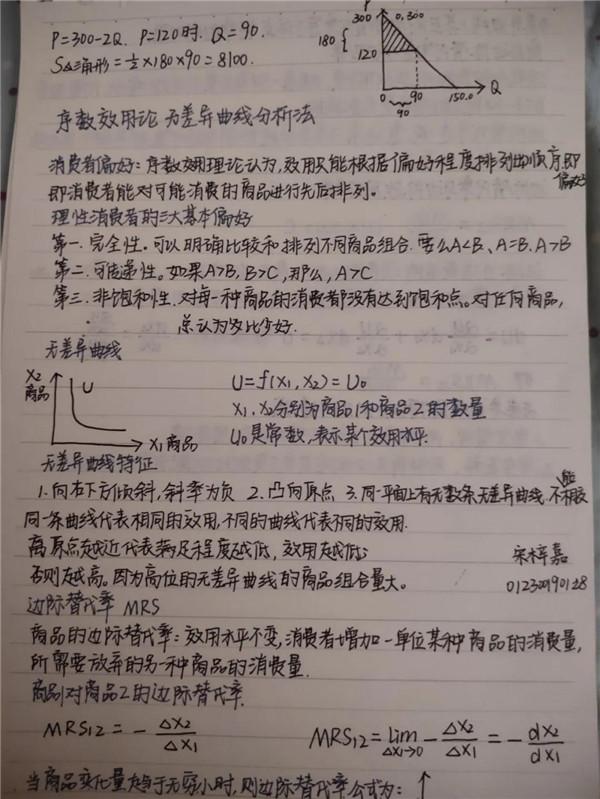 P=300-2Q. P=120时. Q=90.
S△三角形=½×180×90=8100.
P
300
0,300
180
120
0
90
150.0
Q
90
序数效用论 无差异曲线分析法
消费者偏好:序数效用理论认为,效用只能根据偏好程度排列出顺序,即
偏好
即消费者能对可能消费的商品进行先后排列。
理性消费者的三大基本偏好
第一.完全性。可以明确比较和排列不同商品组合.要么A<B、A=B.A>B
第二.可传递性。如果A>B,B>C,那么,A>C
第三.非饱和性.对每一种商品的消费都没有达到饱和点。对任何商品,
总认为多比少好.
无差异曲线
X2
商品
U
X1商品
U=f(X1,X2)=U0
X1,X2分别为商品1和商品2的数量
U0是常数,表示某个效用水平.
无差异曲线特征
1.向右下方倾斜,斜率为负 2.凸向原点 3.同一平面上有无数条无差异曲线.不能相交
同一条曲线代表相同的效用,不同的曲线代表不同的效用.
离原点越近代表满足程度越低,效用越低;
否则越高。因为高位的无差异曲线的商品组合量大。
宋梓嘉
012300190128
边际替代率 MRS
商品的边际替代率:效用水平不变,消费者增加一单位某种商品的消费量,
所需要放弃的另一种商品的消费量.
商品1对商品2的边际替代率.
MRS12=-ΔX2/ΔX1
MRS12=lim ΔX1→0 -ΔX2/ΔX1=-dX2/dX1
当商品变化量趋于无穷小时,则边际替代率公式为:↑